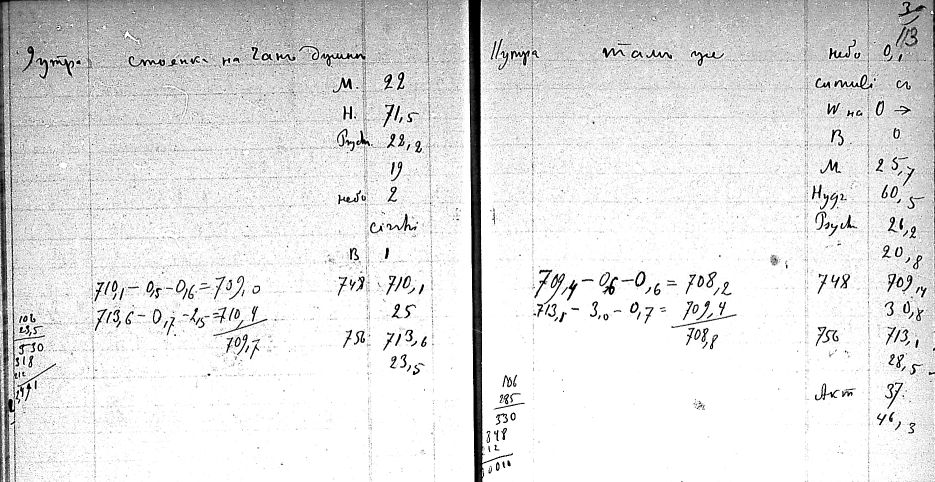 9 утра стоенка на Чанъ
М. 22
Н. 71,5
Psych. 28,2
19
небо 2
cirrhi
В 1
710,1 – 0,5 – 0,6 = 709,0 748 710,1
25
713,6 – 0,7 – 2,5 = 710,4 756 713,6
709,7
23,5
106
23,5
530
318
212
11 утра тамъ же небо 0,1
cumuli
W на О →
В. 0
М 25,7
60,5
Psych 26,2
20,8
709,4 – 0,6 – 0,6 = 708,2 748 709,4
30,8
713,1 – 3,0 – 0,7 = 709,4 756 713,1
708,8
28,5
Акт 37.
46,3
106
285
212